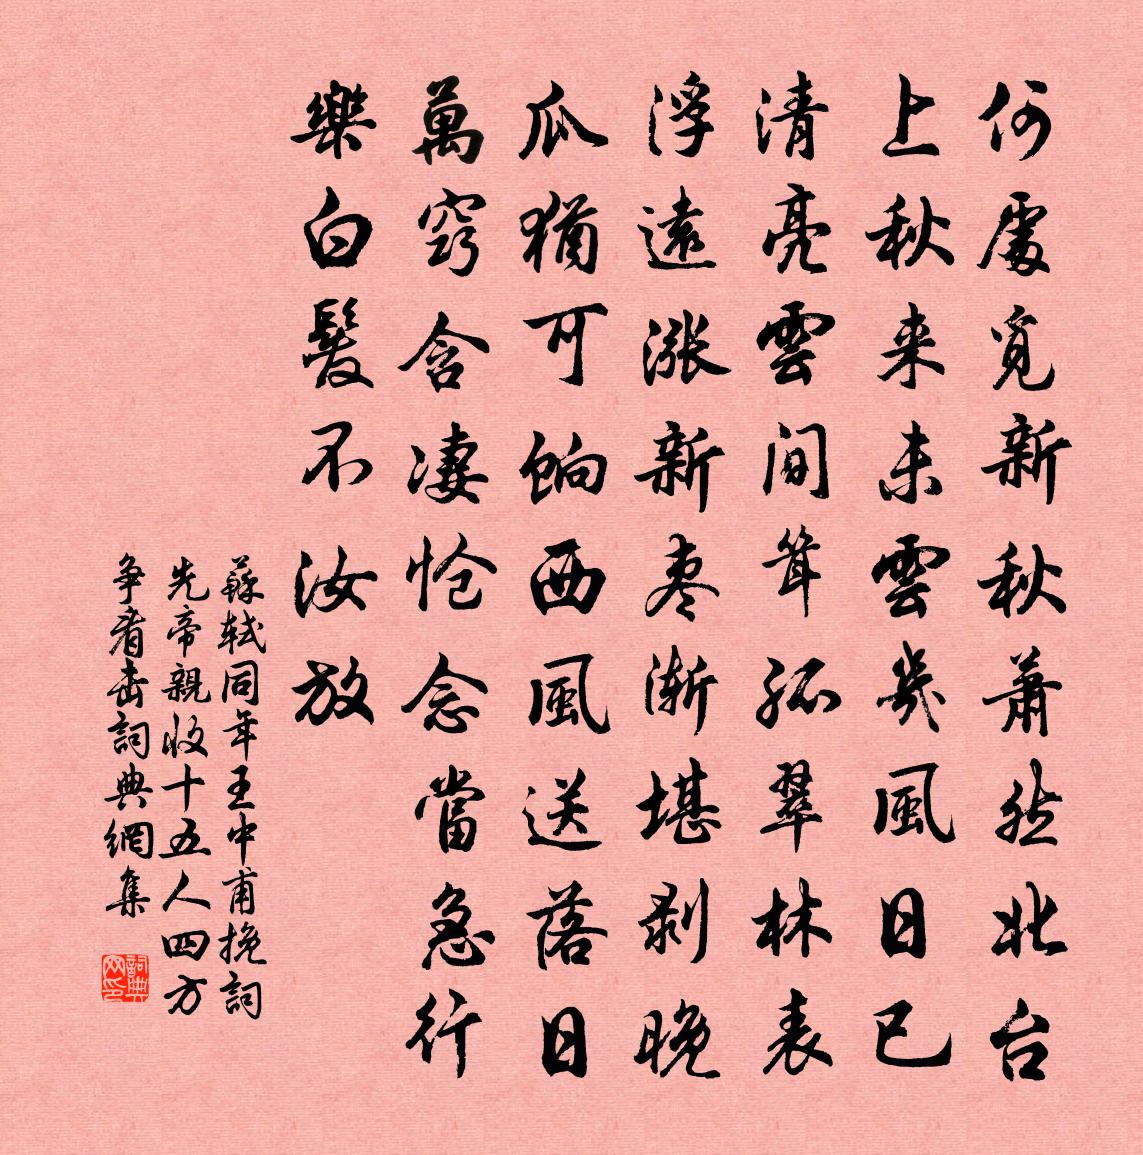 何處覓新秋蕭然北台
上秋来未雲幾風日已
清亮雲間聳孤翠林表
浮遠漲新枣漸堪剥晚
瓜猶可餉西風送落日
萬竅含凄怆念當急行
樂白髮不汝放
蘇軾同年王中甫挽詞
先帝親收十五人四方
争看击詞典網集
詞典网印